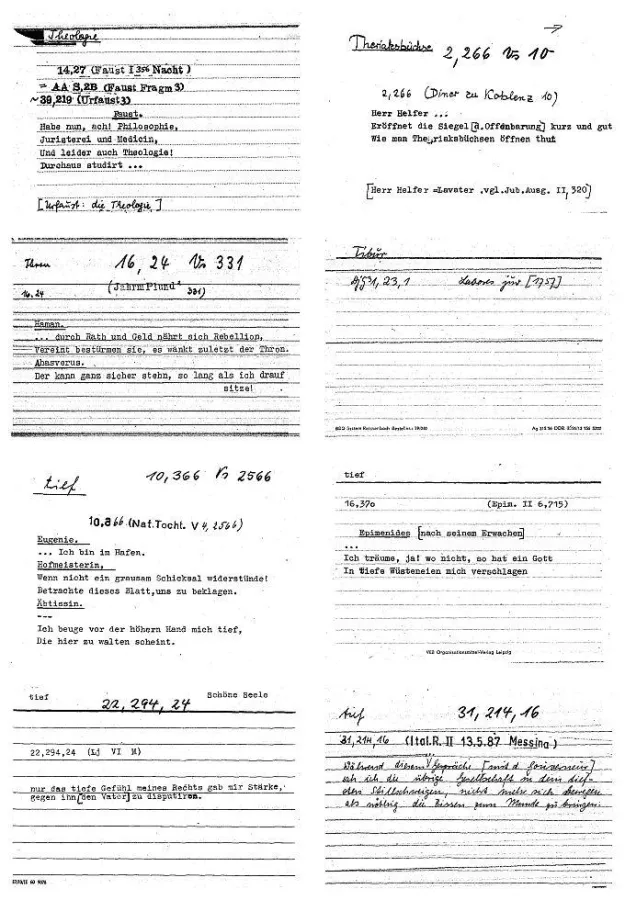 Theologie
14,27 (Faust I 356 Nacht)
= AA S,2B (Faust Fragm 3)
~39,219 (Urfaust3)
Faust.
Habe nun, ach! Philosophie,
Juristerei und Medicin,
Und leider auch Theologie!
Durchaus studirt ...
[Urfaust: die Theologie]
Theriaksbüchse 2,266 Vs 10
2,266 (Diner zu Koblenz 10)
Herr Helfer ...
Eröffnet die Siegel [d.Offenbarung] kurz und gut
Wie man The riaksbüchsen öffnen thut
[Herr Helfer =Lavater .vgl.Jub.Ausg. II, 320)
Thron 16,24 Vs 331
16.24 (JahrmPlund 331)
Haman.
... durch Rath und Geld nährt sich Rebellion,
Vereint bestürmen sie, es wankt zuletzt der Thron.
Ahasverus.
Der kann ganz sicher stehn, so lang als ich drauf
sitze!
Tibur
1,23,1 Labores juv [1757]
tief 10,366 Vs 2566
10.366 (Nat.Tocht. V 4, 2566)
Eugenie.
... Ich bin im Hafen.
Hofmeisterin,
Wenn nicht ein grausam Schicksal widerstünde!
Betrachte dieses Blatt,uns zu beklagen.
Äbtissin.
---
Ich beuge vor der höhern Hand mich tief,
Die hier zu walten scheint.
tief
16,370 (Epim. II 6,715)
Epimenides [nach seinem Erwachen]
...
Ich träume, ja! wo nicht, so hat ein Gott
In tiefe Wüsteneien mich verschlagen
VEB Organisationsmittel-Verlag Leipzig
tief 22,294,24 Schöne Seele
22,294,24 (Lj VI M)
nur das tiefe Gefühl meines Rechts gab mir Stärke,
gegen ihn [den Vater] zu disputiren.
tief 31,214,16
31,214,16 (Ital.R. II 13.5.87 Messina)
Während diesem Gespräche [mit d. Gouverneur]
sah ich die übrige Gesellschaft in dem tief-
sten Stillschweigen, nicht mehr sich bewegen
als nöthig die Bissen zum Munde zu bringen.